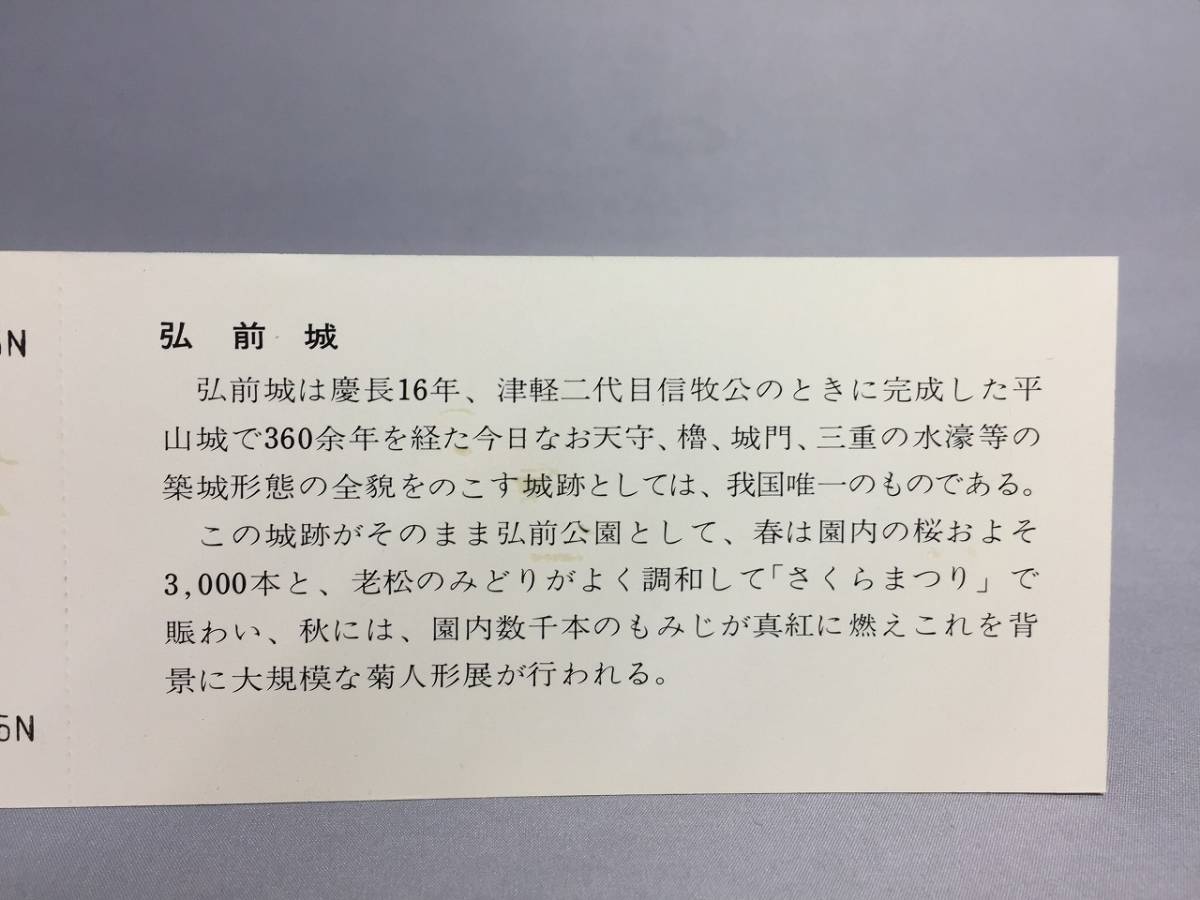 弘前城
弘前城は慶長16年、津軽二代目信牧公のときに完成した平
山城で360余年を経た今日なお天守、櫓、城門、三重の水濠等の
築城形態の全貌をのこす城跡としては、我国唯一のものである。
この城跡がそのまま弘前公園として、春は園内の桜およそ
3,000本と、老松のみどりがよく調和して「さくらまつり」で
賑わい、秋には、園内数千本のもみじが真紅に燃えこれを背
景に大規模な菊人形展が行われる。
5N